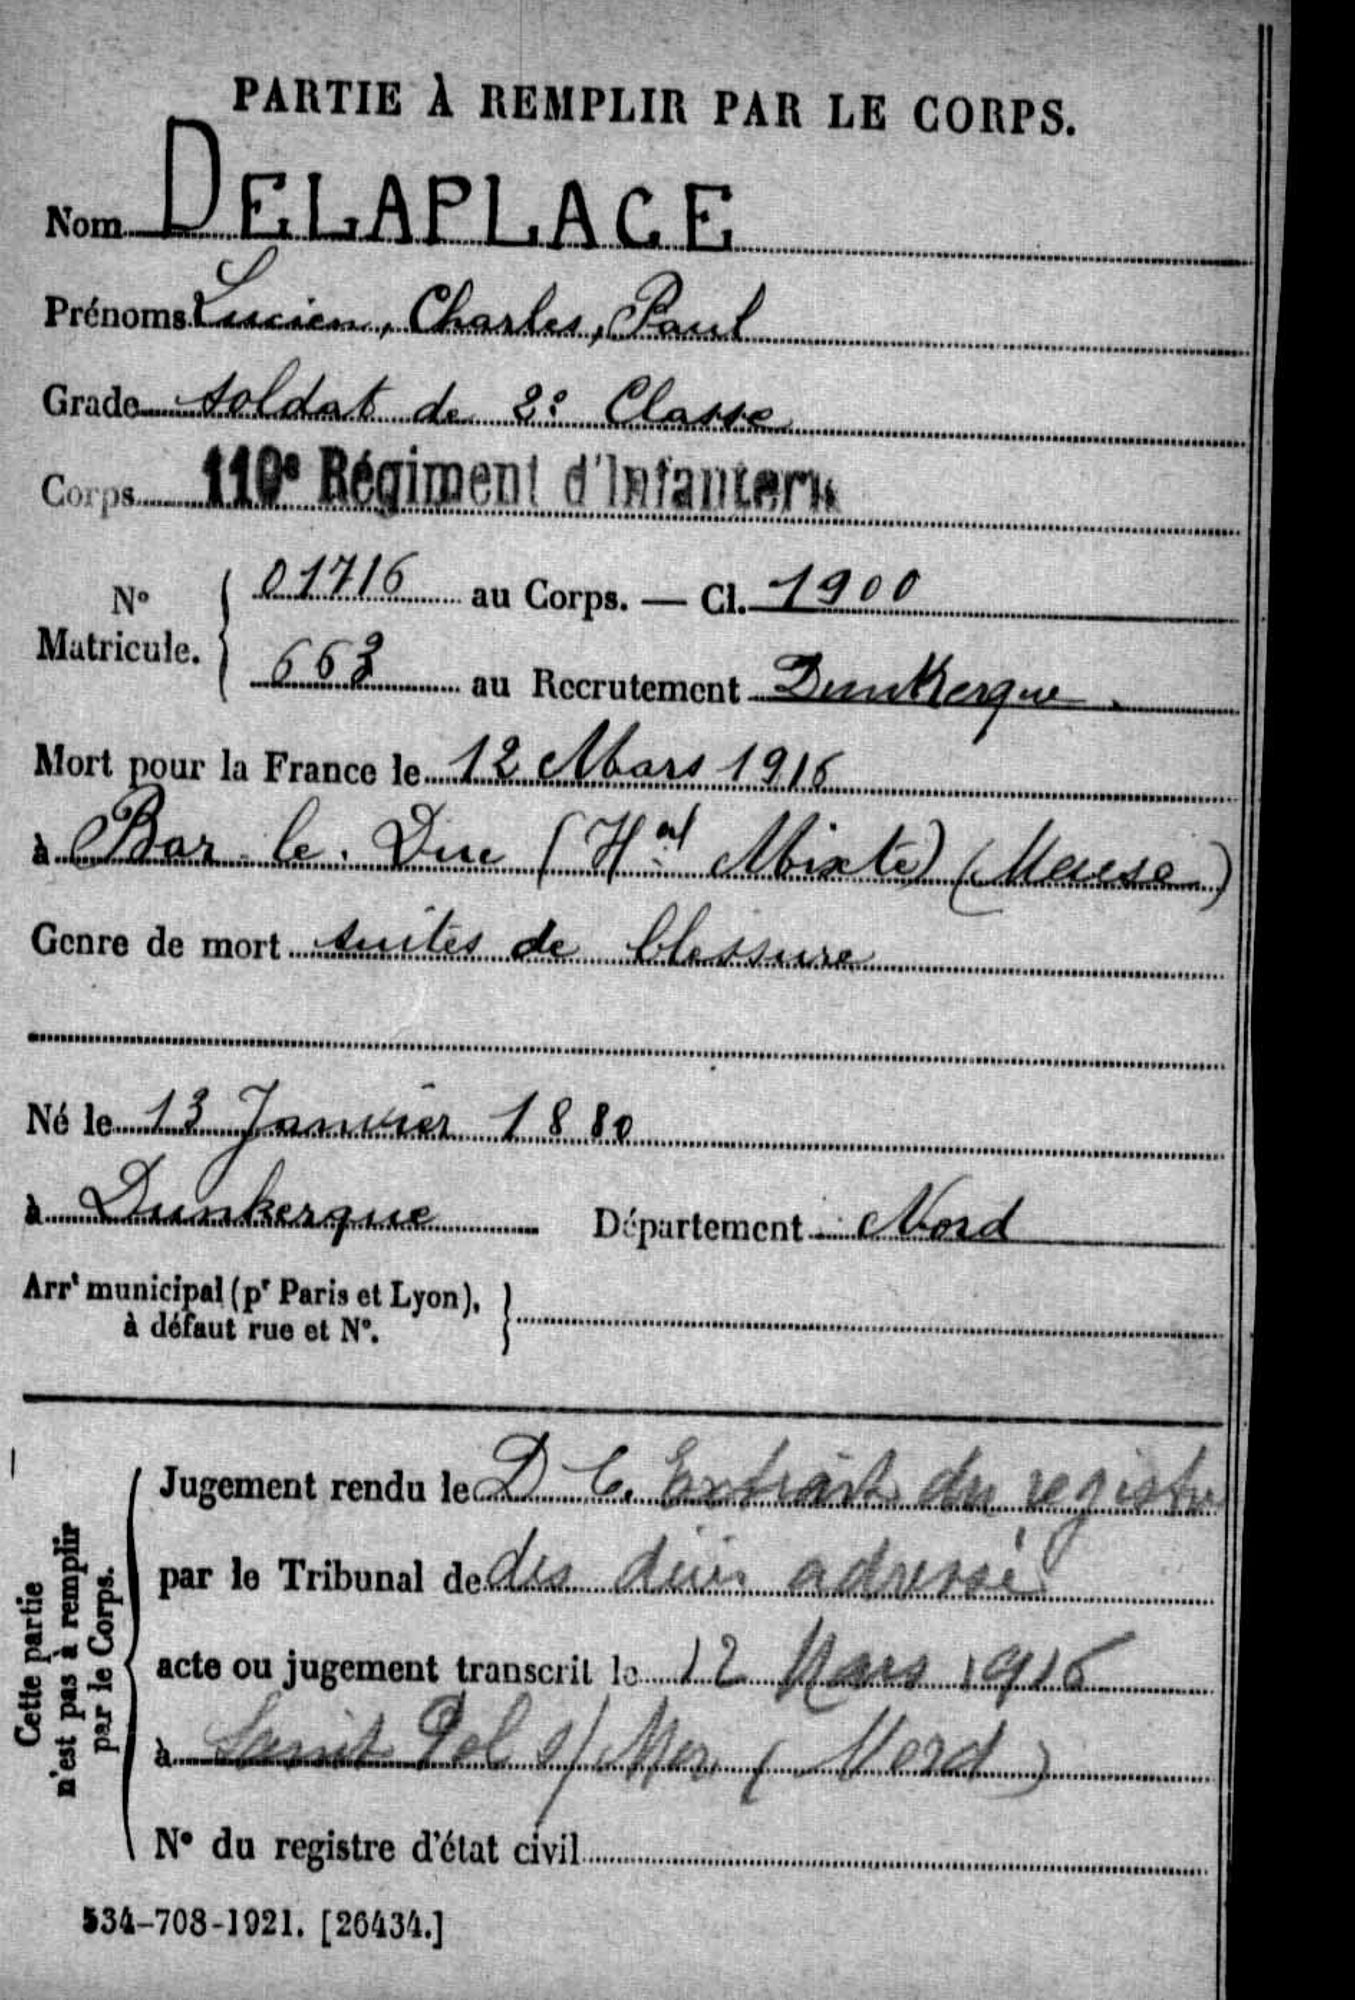 PARTIE À REMPLIR PAR LE CORPS.
Nom DELAPLACE
Prénoms Lucien, Charles, Paul
Grade soldat de 2e Classe
Corps 110e Régiment d'Infanterie
N° Matricule. { 01716 au Corps. — Cl. 1900
663 au Recrutement Dunkerque
Mort pour la France le 12 Mars 1916
à Bar-le-Duc (Hal Mixte) (Meuse)
Genre de mort suites de blessure
Né le 13 Janvier 1880
à Dunkerque Département Nord
Arrt municipal (pr Paris et Lyon),
à défaut rue et N°.
Cette partie
n'est pas à remplir
par le Corps.
Jugement rendu le D C. Extrait du registre
par le Tribunal de des adressé
acte ou jugement transcrit le 12 Mars 1916
à Saint Pol s/ Mer (Nord)
N° du registre d'état civil
534-708-1921. [26434.]